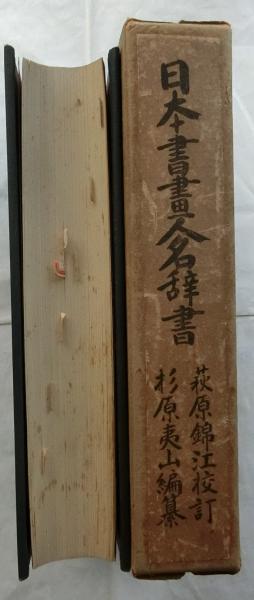 日本書畫人名辞書
萩原錦江校訂
杉原夷山編纂